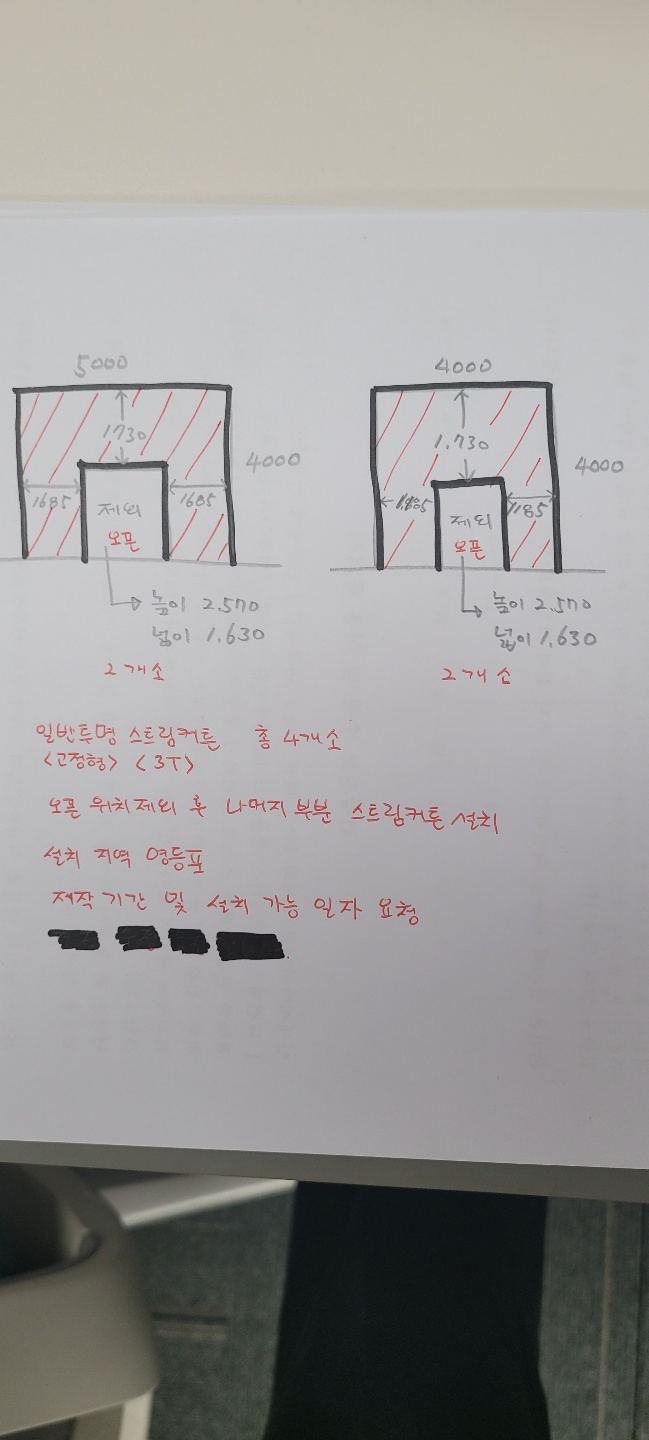 5000
1730
4000
1685
1685
제외
오픈
높이 2.570
넓이 1.630
2개소
4000
1.730
4000
1185
제외
오픈
높이 2.570
넓이 1.630
2개소
일반투명 스트림커튼 총 4개소
<고정형> <3T>
오픈 위치 제외 후 나머지 부분 스트림커튼 설치
설치 지역 영등포
제작기간 및 설치 가능 일자 요청